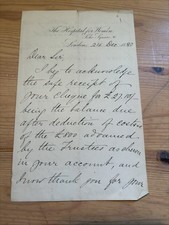 The Hospital for Women
Soho Square W
London 24 Dec 1880
Dear Sir,
I beg to acknowledge
the safe receipt of
your cheque for £
being the balance due
after deduction of costs
of the £ advanced
by the Trustees as shown
in your account, and
now thank you for your